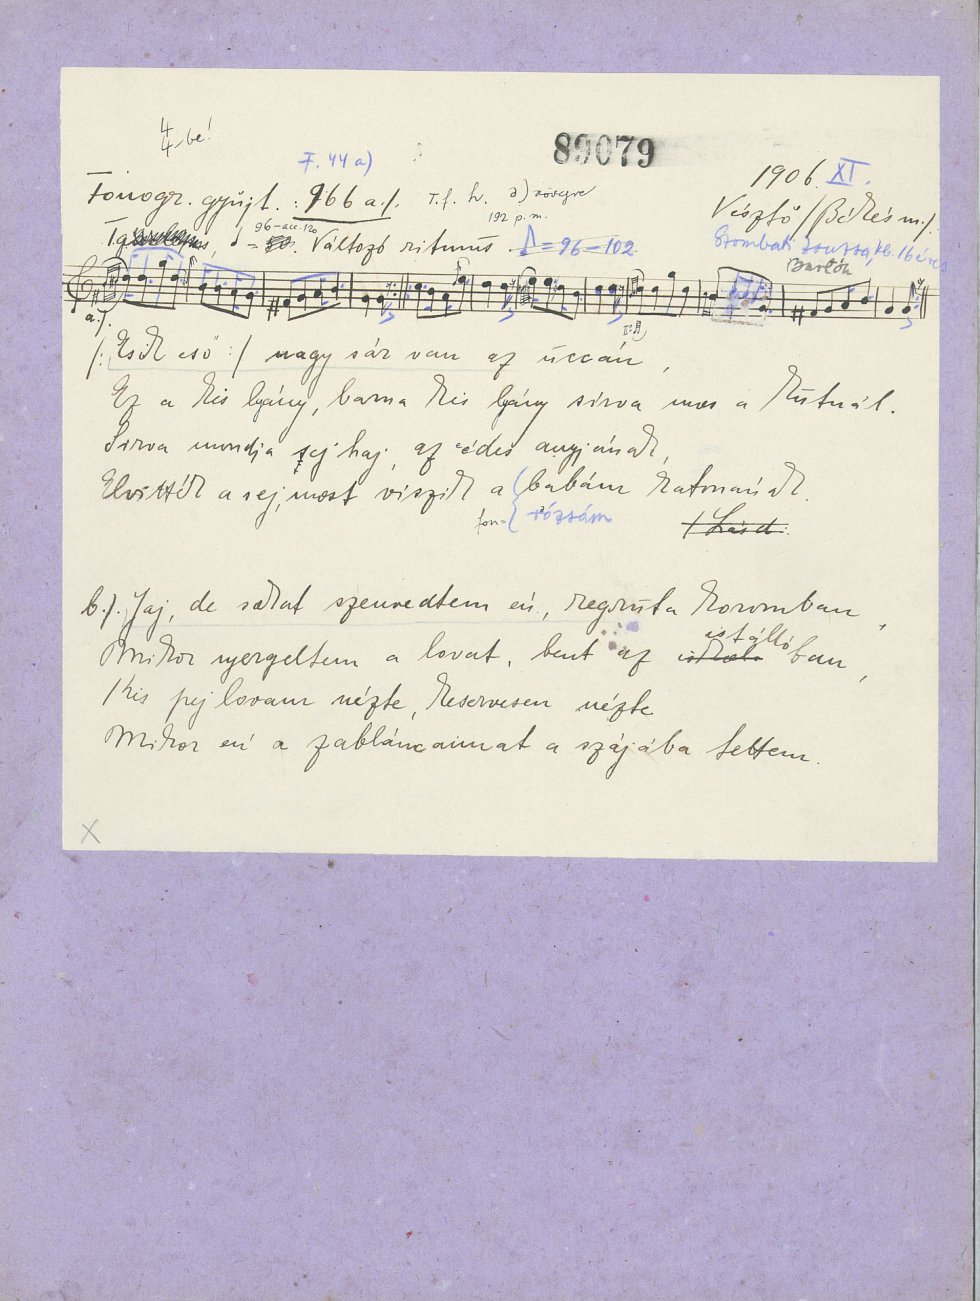 4/4-be!
89079
F. 44 a)
1906. XI.
Fonogr. gyűjt. : 966 a./. T. f. h. a) szövegre
192 p. m.
Vésztő (Békés m.).
96-acc. 120
Változó ritmus ♪ = 96-102
Szombati Zsuzsa, kb. 16 éves
Bartók
a).
/: Esik eső :/ nagy sár van az uccán,
Ez a kis lyány, barna kis lyány sirva mos a kútnál.
Sirva mondja sej haj, az édes anyjának,
Elvitték a sej, most viszik a babám katonának.
fon: rózsám
/Lásd:
b.). Jaj, de sokat szenvedtem én, regruta koromban,
istálló
Mikor nyergeltem a lovat, bent az ban,
Kis pej lovam nézte, keservesen nézte
Mikor én a zabláncaimat a szájába tettem.
X